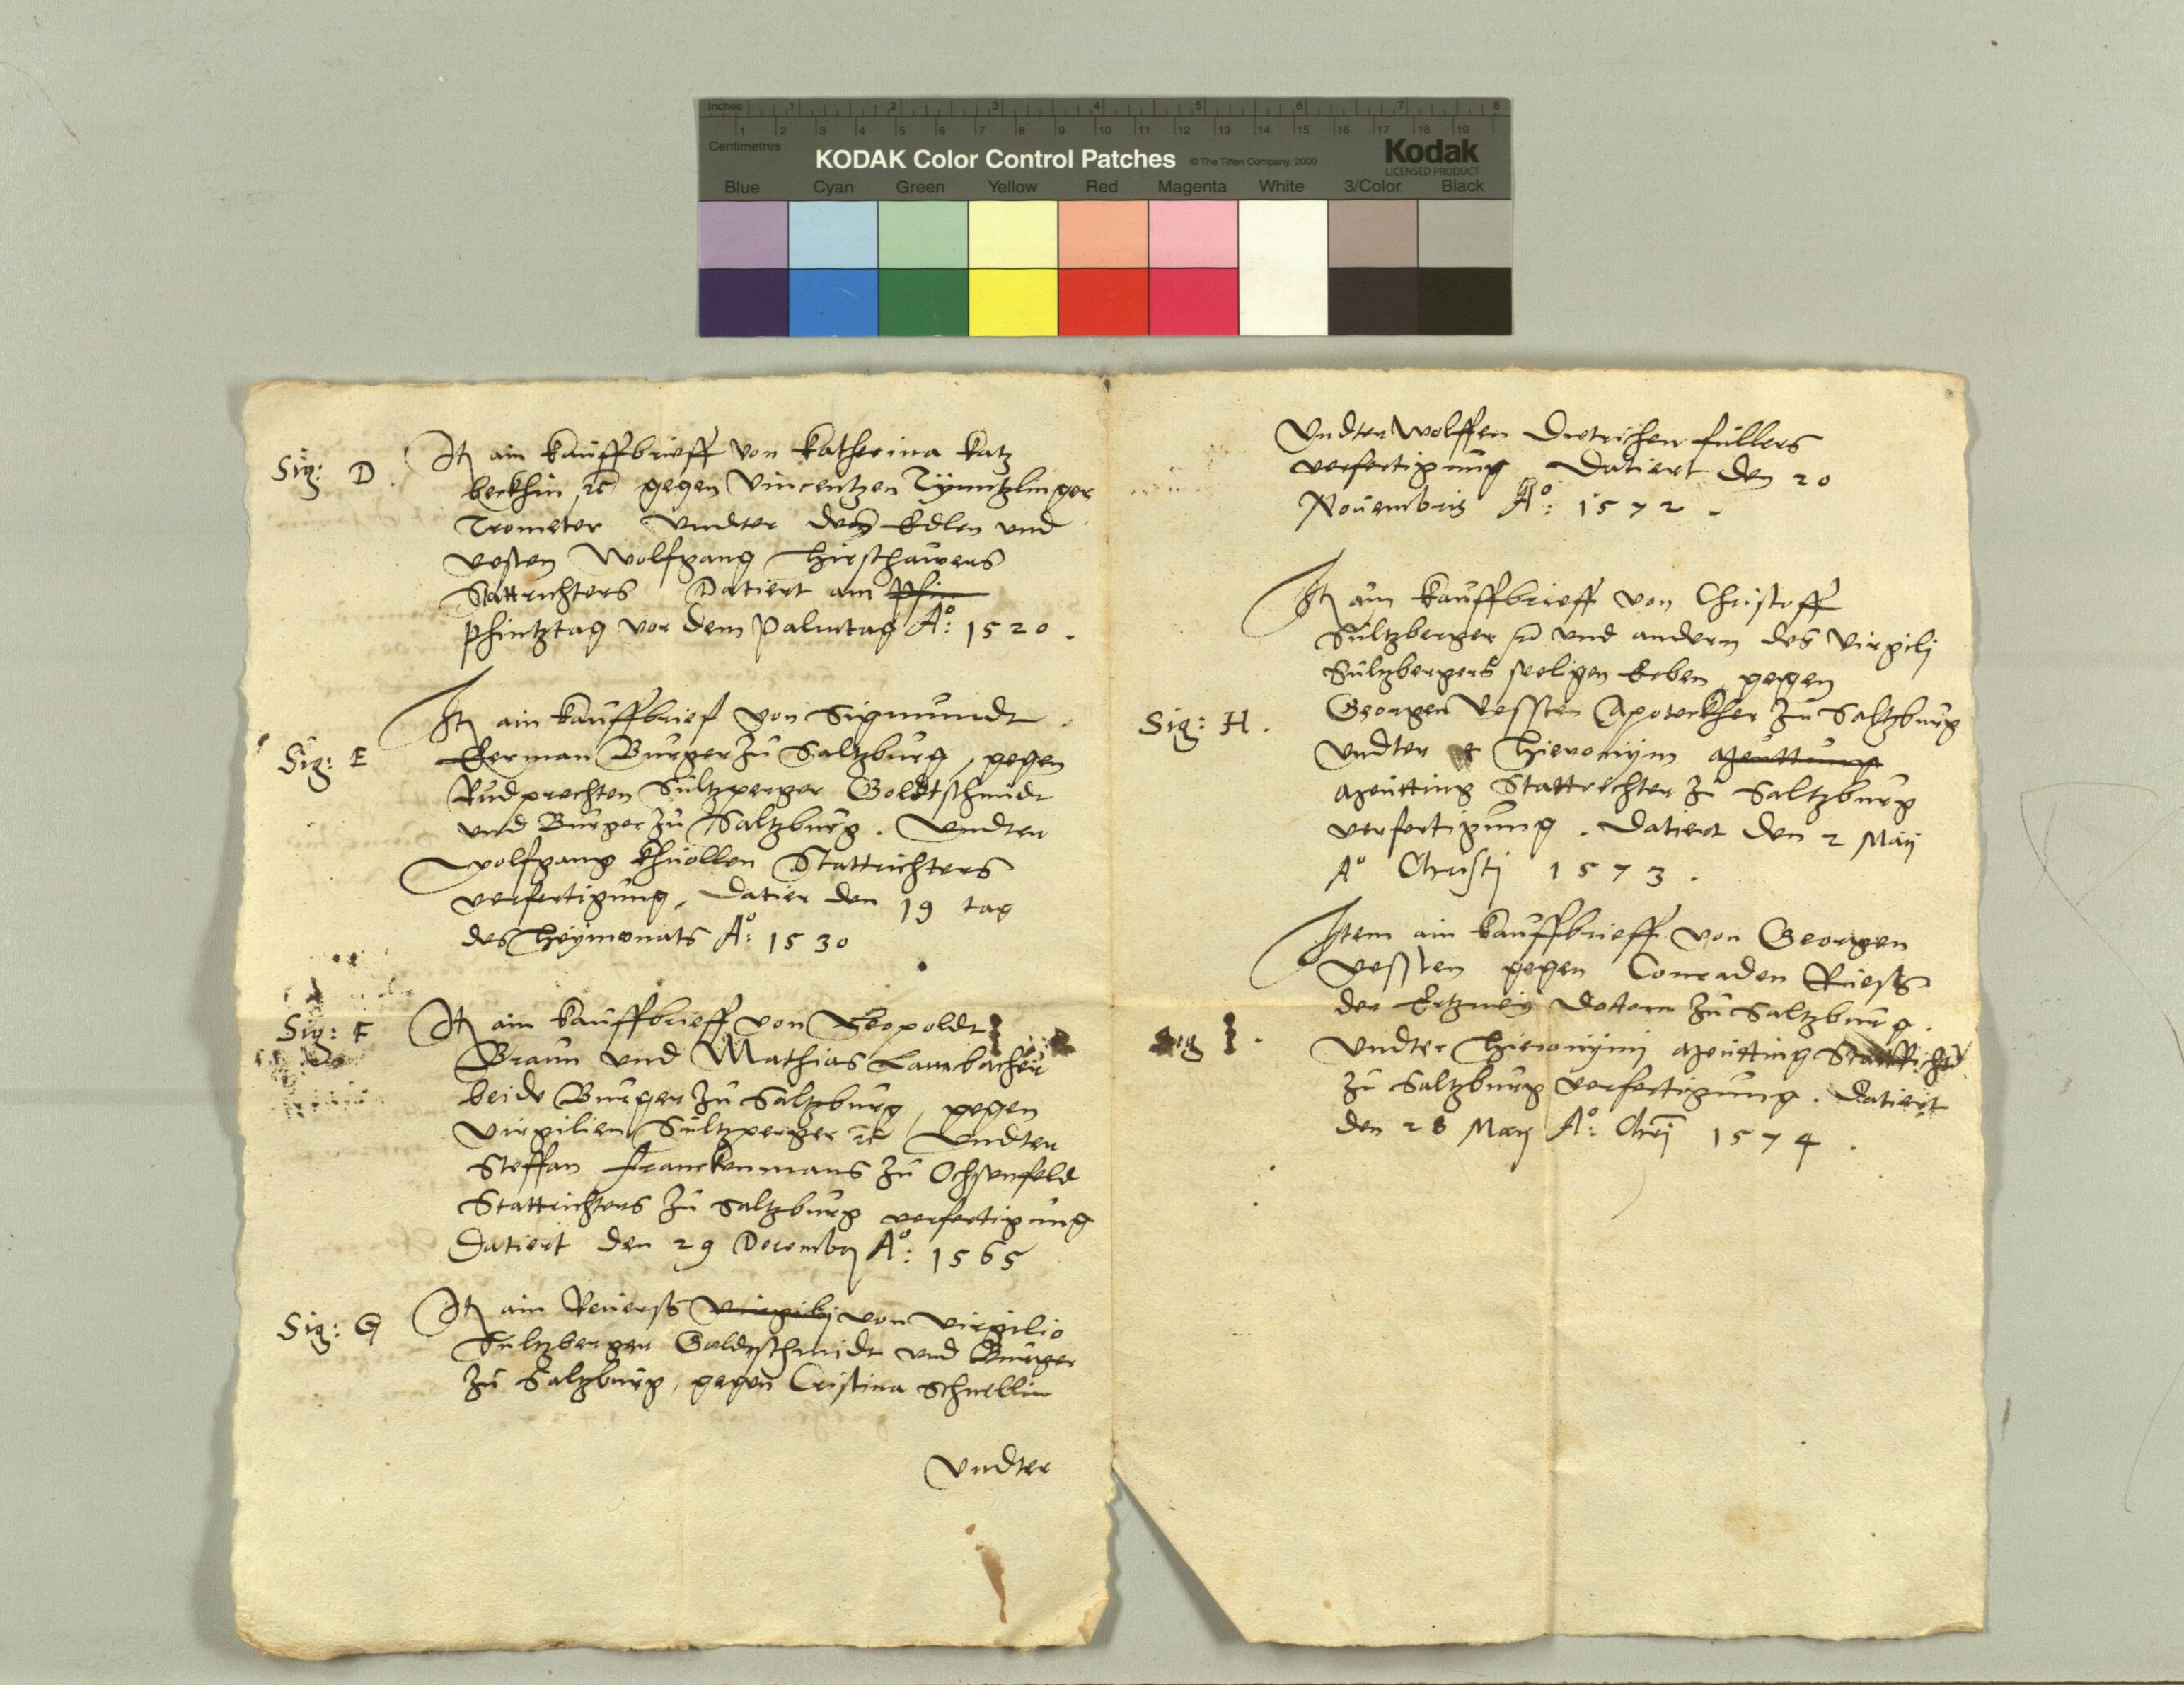 Inches 1 2 3 4 5 6 7 8
1 2 3 4 5 6 7 8 9 10 11 12 13 14 15 16 17 18 19
Centimetres
KODAK Color Control Patches © The Tiffen Company, 2000 Kodak
LICENSED PRODUCT
Blue Cyan Green Yellow Red Magenta White 3/Color Black
Sig: D. It ain Kauffbrieff von Katherina Katz
beckhin ꝛc gegen Vincentzen
Trometer Undter des Edlen und
vesten Wolfgang Hirschawers
Stattrichters Datiert am Pfin
Phintztag vor dem Palmtag Aº: 1520.
Sig: E It ain Kauffbrief von Sigmundt
Kerman Burger zu Saltzburg, gegen
Rudprechten Sultzperger Goldtschmidt
und Burger zu Saltzburg. Undter
Wolfgang Khnollen Stattrichters
verfertigung, Datier den 19 tag
des Heymonats Aº: 1530
Sig: F It ain Kauffbrieff von Leopoldt
Braun und Mathias Lambacher
beide Burger zu Saltzburg, gegen
Virgilien Sultzperger ꝛc Undter
Steffan Franckenmans zu Ochsenfeld
Stattrichters zu Saltzburg verfertigung
Datiert den 29 Decembr Aº: 1565
Sig: G It ain Reuerss Virgilij von Virgilio
Sultzberger Goldtschmidt und Burger
zu Saltzburg, gegen Cristina Schnellin
Undter
Undter Wolffen Dietrichen Füllers
verfertigung Datiert den 20
Nouembris Aº: 1572.
It ain Kauffbrieff von Christoff
Sultzberger ꝛc und andern des Virgilij
Sultzbergers seeligen Erben, gegen
Sig: H. Georgen Vessten Apoteckher zu Saltzburg
Undter Hieronijm
Stattrichter zu Saltzburg
verfertigung. Datiert den 2 Maij
Aº Christj 1573.
Item ain Kauffbrieff von Georgen
Vessten gegen Conraden Riess
der Ertzney Doctorn zu Saltzburg.
Sig I. Undter Hieronijmj Stattricht
zu Saltzburg verfertigung. Datiert
den 28 Maij Aº: Chrj 1574.